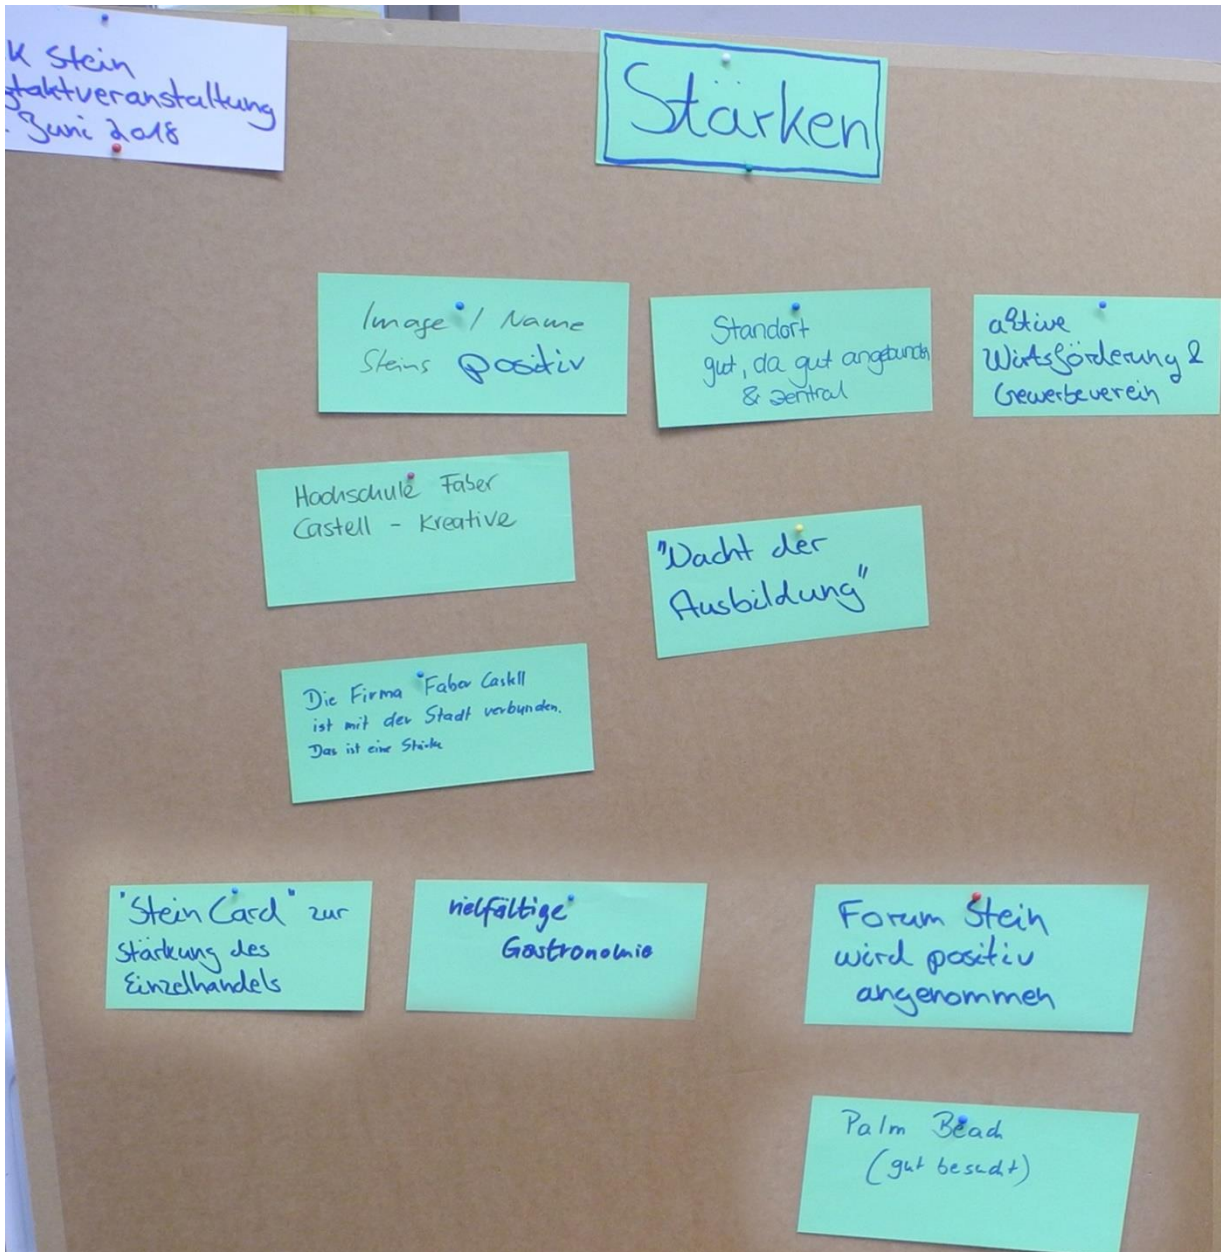 K Stein
taktveranstaltung
. Juni 2018
Stärken
Image / Name
Steins positiv
Standort
gut, da gut angebunden
& zentral
aktive
Wirtsförderung &
Gewerbeverein
Hochschule Faber
Castell - Kreative
"Nacht der
Ausbildung"
Die Firma Faber Castell
ist mit der Stadt verbunden.
Das ist eine Stärke
"Stein Card" zur
Stärkung des
Einzelhandels
vielfältige
Gastronomie
Forum Stein
wird positiv
angenommen
Palm Beach
(gut besucht)